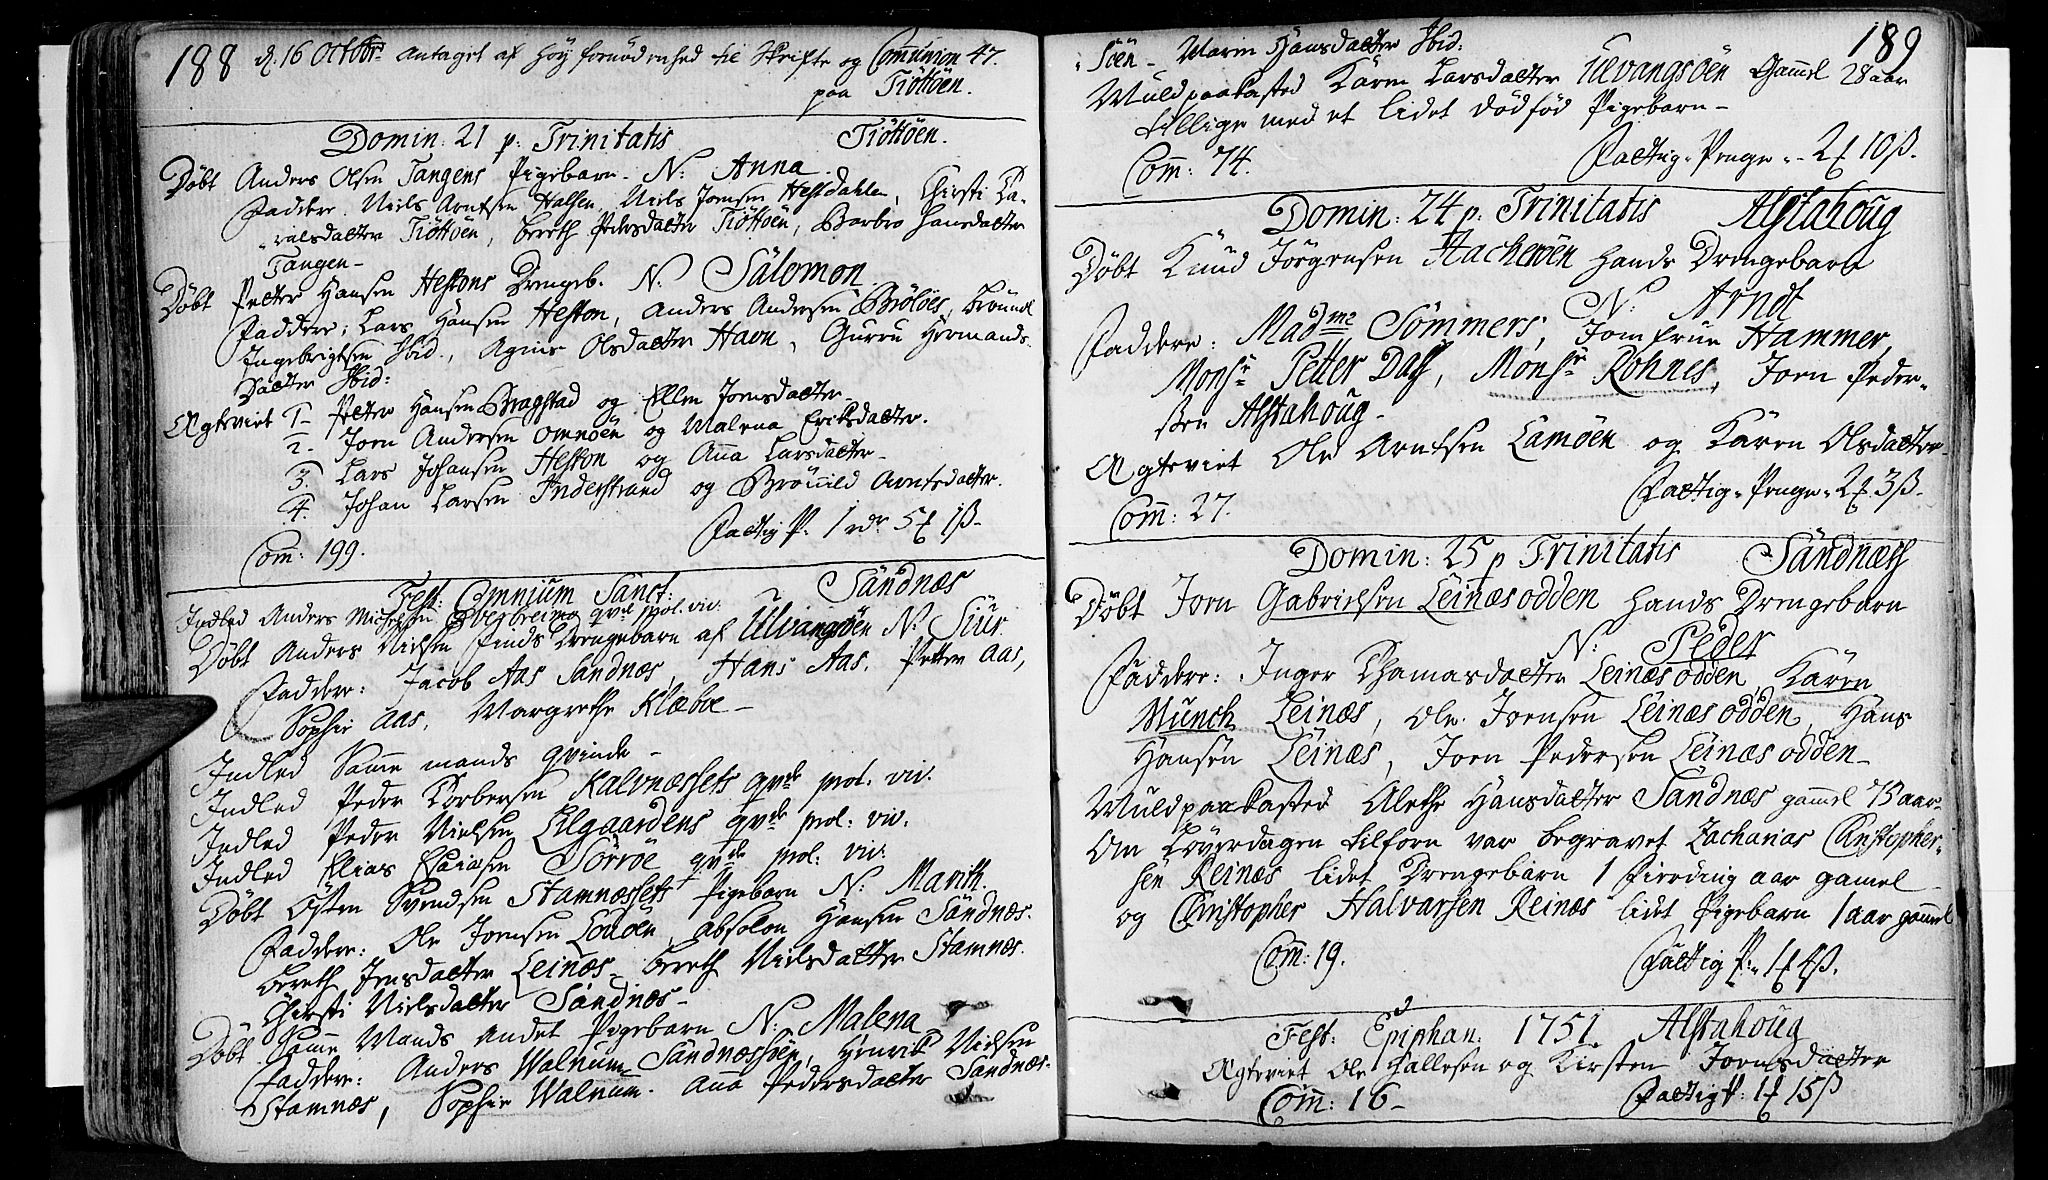 188 d. 16 Octobr antaget af høy fornødenhed til Skrifte og Communion 47.
paa Tiöttöen.
Domin: 21 p: Trinitatis Tiöttöen.
Døbt Anders Olsen Tangens Pigebarn. N: Anna
Faddere. Niels Arntsen Halsen, Niels Jonsen Hestdahlen, Chirsti La-
-ralsdaatter Tiöttöen, Bereth Pedersdatter Tiöttöen, Barbro Hansdatter
Tangen-
Døbt Petter Hansen Hestøns Drengeb. N: Salomon
Faddere; Lars Hansen Hestøn, Anders Andersen Brölöes,
Ingebrigtsen Ibid., Agnis Olsdaatter Havn, Gurru Hermands-
Daatter Ibid:
Ægteviet 1- Petter Hansen Bragstad og Ellen Jonsdaatter-
2- Jorn Andersen Omnöen og Malena Eriksdaatter.
3. Lars Johansen Hestøn og Anna Larsdaatter-
4. Johan Larsen Inderstrand og Brönild Arntsdaatter.
Fattig P: 1 rdr 5 ƒ 1ß-
Com: 199.
Fest: Omnium Sanct: Sandnæs
Indled Anders Michelsen qvd prol. viv:
Døbt Anders Nielsen Finds Drengebarn af Ulvangsöen N: Siur
Faddere: Jacob Aas Sandnæs, Hans Aas. Petter Aas,
Sophie Aas, Margrethe Klæboe-
Indled Samme mands qvinde-
Indled Peder Torbersen Kalvnæssets qvde prol. viv.
Indled Peder Nielsen Lilgaardens qvde prol: viv.
Indled Elias Esaiasen Sörröe qvde prol: viv.
Døbt Østen Svendsen Stamnæssets Pigebarn N: Marith.
Faddere: Ole Jonsen, Absolon Hansen Sandnæs.
Bereth Jensdaatter Leinæs- Bereth Nielsdatter Stamnæs.
Chirsti Nielsdaatter Sandnæs-
Døbt Samme Mands andet Pigebarn N: Malena
Faddere: Anders Walnum Sandnæssöen, Henrik Nielsen
Stamnæs, Sophie Walnum. Anna Pedersdaatter Sandnæs.
189
-söen- Maren Hansdaatter Ibid:
Muldpaakasted Karen Larsdaatter Ulvangsöen Gammel 28 aar
tillige med et lidet dødfød Pigebarn-
Com: 74. Fattig-Penge- 2 ƒ 10ß.
Domin: 24 p: Trinitatis Alstahoug
Døbt Knud Jörgensen Hacheröen hands Drengebarn
N: Arndt
Faddere: Madme Sommers; Jomfrue Hammer,
Monsr Petter Dass, Monsr Rohnes, Jorn Peder-
sen Alstahoug-
Ægteviet Ole Arntsen Lamöen og Karen Olsdaatter-
Fattig-Penge- 2 ƒ 3ß-
Com: 27.
Domin: 25 p Trinitatis Sandnæss
Døbt Jorn Gabrielsen Leinæsodden hands Drengebarn
N: Peder
Faddere: Inger Thamasdaatter Leinæsodden, Karen
Munch Leinæs, Ole Jonsen Leinæsodden, Hans
Hansen Leinæs, Jorn Pedersen Leinæsodden-
Muldpaakasted Alethe Hansdaatter Sandnæs gammel 75 aar-
Om Løverdagen tilforn var begravet Zacharias Christopher-
sen Reinæs lidet Drengebarn 1 Fierding aar gamel
og Christopher Halvarsen Reinæs lidet Pigebarn 1 aar gamel
Com: 19. Fattig P:- 1 ƒ 4ß.
Fest: Epiphan: 1751. Alstahoug
Ægteviet Ole Hallesen og Kirsten Jornsdaatter
Com: 16- Fattig P: 1 ƒ 15ß